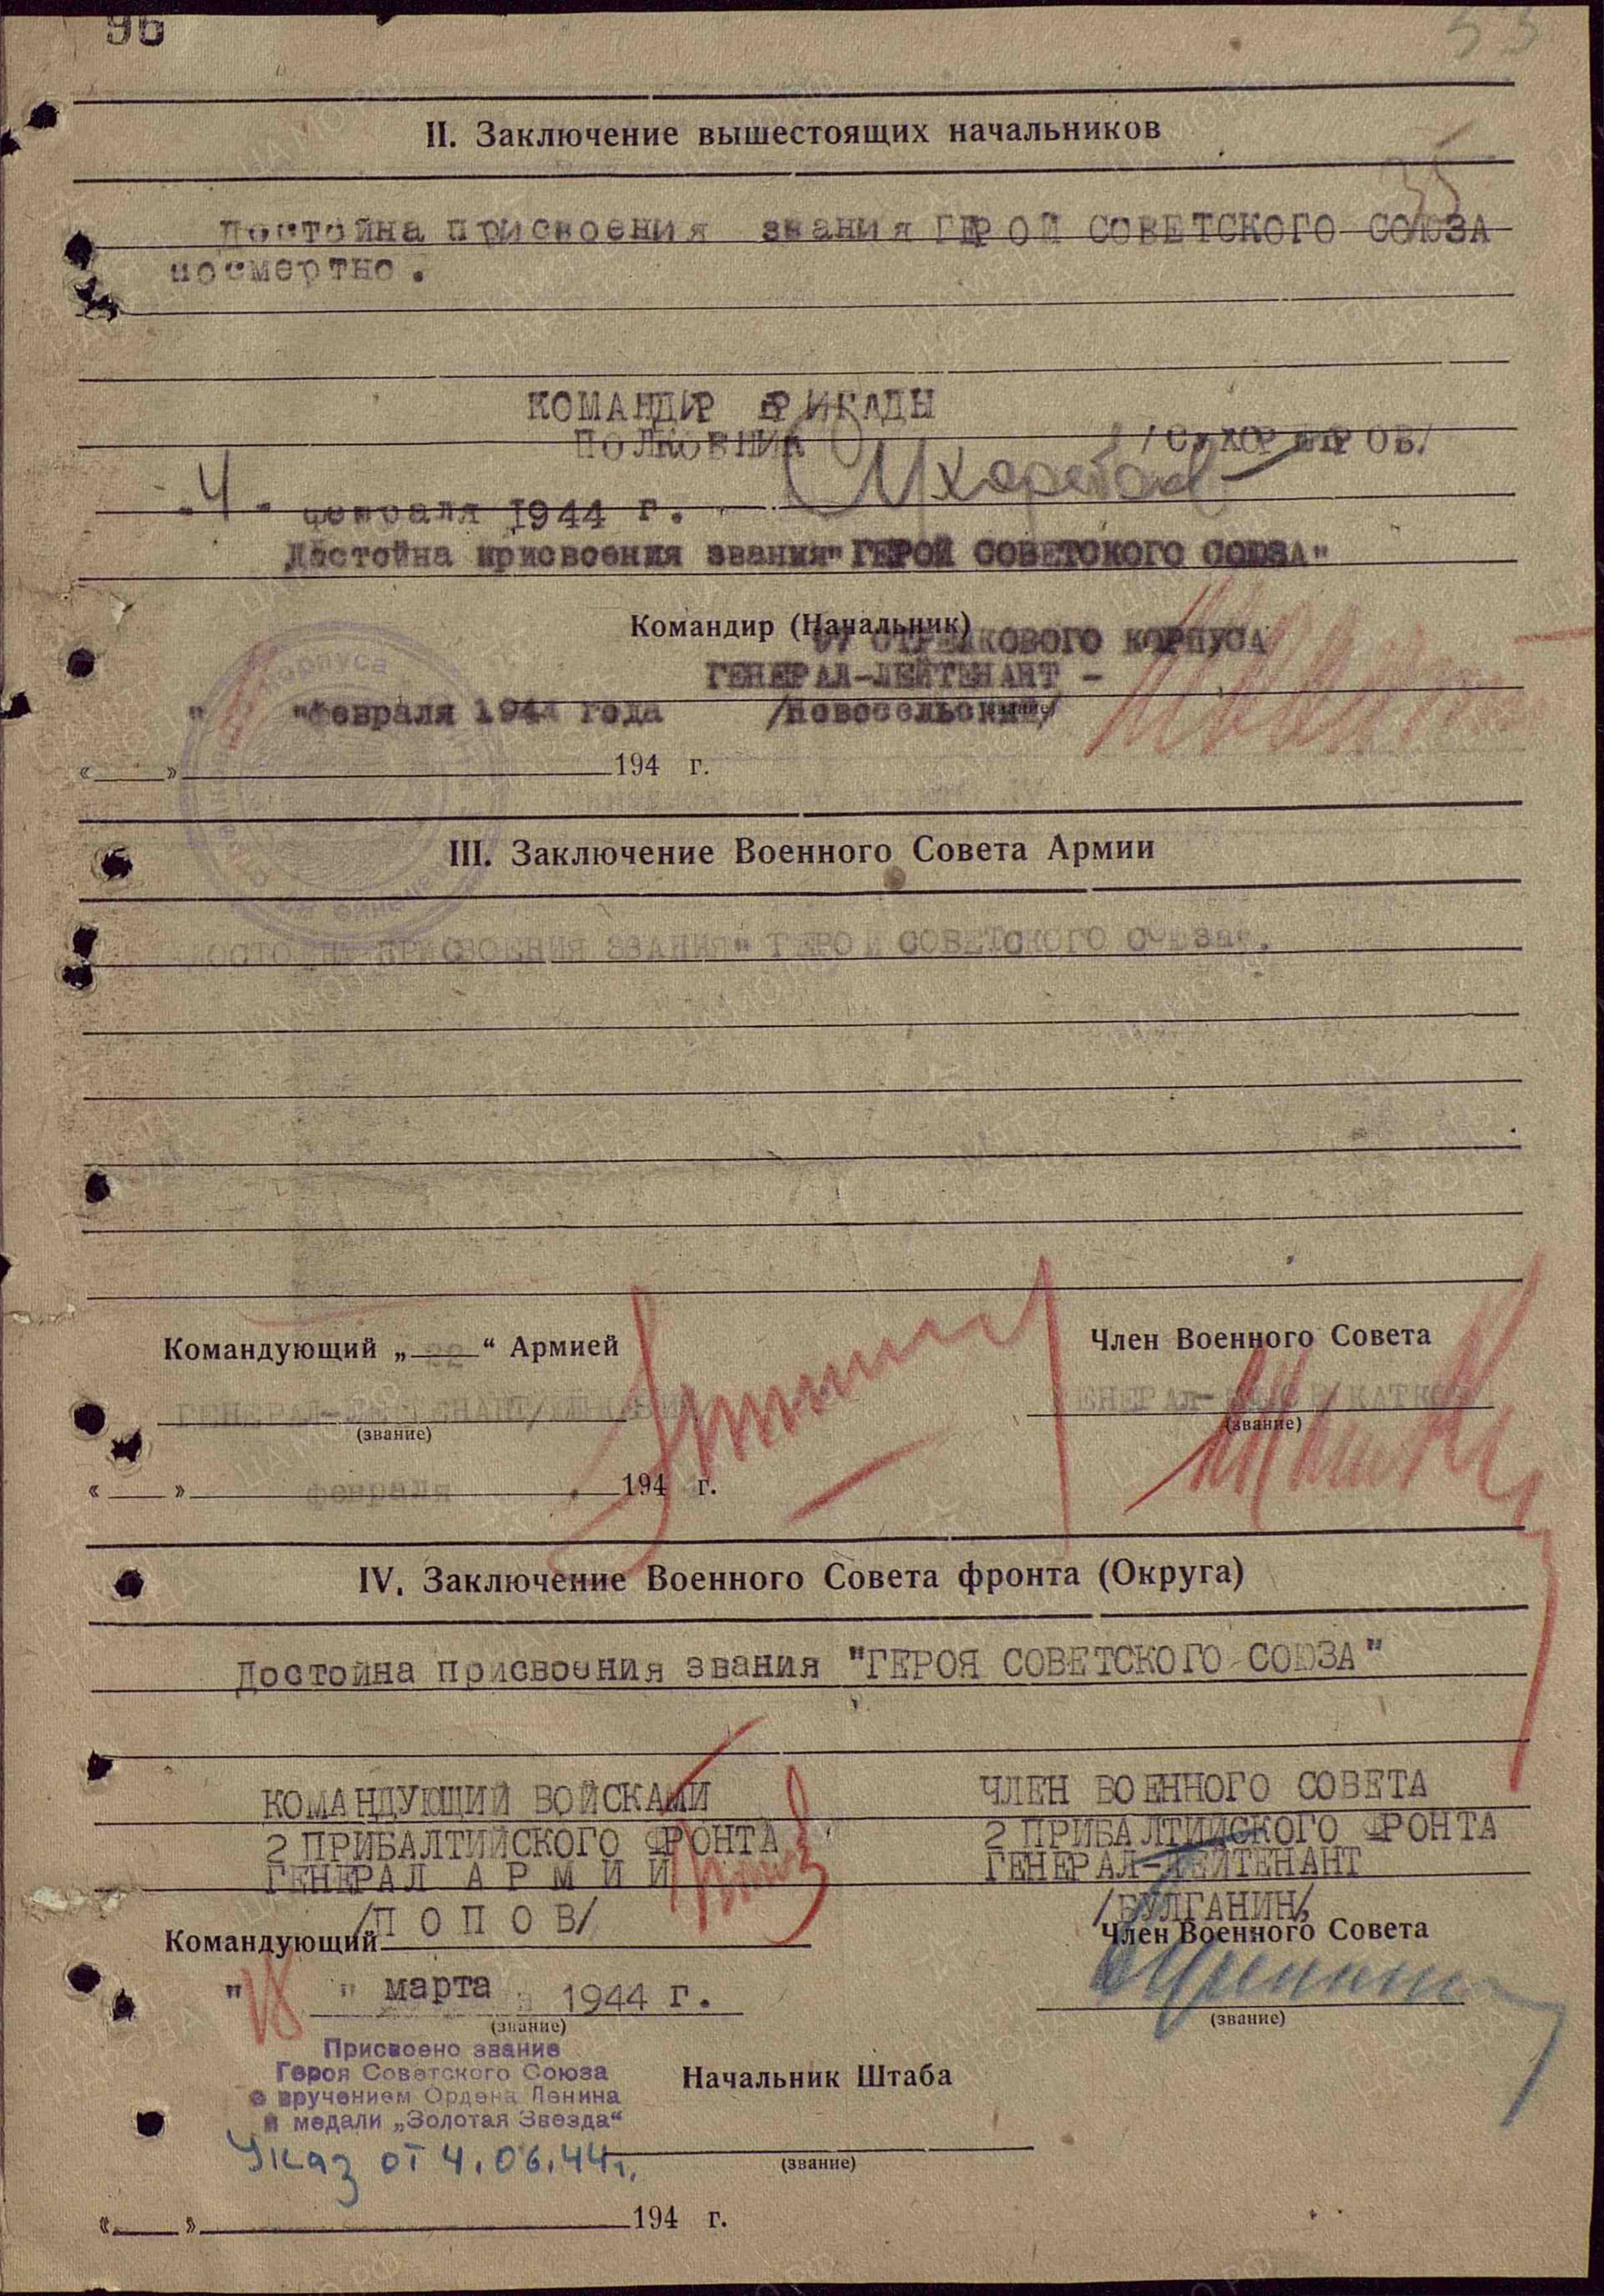 96
53
II. Заключение вышестоящих начальников
35
Достойна присвоения звания ГЕРОЙ СОВЕТСКОГО СОЮЗА
посмертно.
КОМАНДИР БРИГАДЫ
ПОЛКОВНИК
„4" февраля 1944 г.
Достойна присвоения звания "ГЕРОЙ СОВЕТСКОГО СОЮЗА"
Командир (Начальник)
97 СТРЕЛКОВОГО КОРПУСА
ГЕНЕРАЛ-ЛЕЙТЕНАНТ -
" "февраля 1944 года /Новосельский/
«___»___194 г.
III. Заключение Военного Совета Армии
ДОСТОЙНА ПРИСВОЕНИЯ ЗВАНИЯ "ГЕРОЙ СОВЕТСКОГО СОЮЗА".
Командующий „22“ Армией
Член Военного Совета
ГЕНЕРАЛ-ЛЕЙТЕНАНТ
ГЕНЕРАЛ-МАЙОР
(звание)
(звание)
«___» февраля 194 г.
IV. Заключение Военного Совета фронта (Округа)
Достойна присвоения звания "ГЕРОЯ СОВЕТСКОГО СОЮЗА"
КОМАНДУЮЩИЙ ВОЙСКАМИ
2 ПРИБАЛТИЙСКОГО ФРОНТА
ГЕНЕРАЛ АРМИИ
/ПОПОВ/
ЧЛЕН ВОЕННОГО СОВЕТА
2 ПРИБАЛТИЙСКОГО ФРОНТА
ГЕНЕРАЛ-ЛЕЙТЕНАНТ
/БУЛГАНИН/
Командующий
Член Военного Совета
"18" марта 1944 г.
(звание)
(звание)
Присвоено звание
Героя Советского Союза
с вручением Ордена Ленина
и медали „Золотая Звезда“
Указ от 4.06.44г.
Начальник Штаба
(звание)
«___»___194 г.